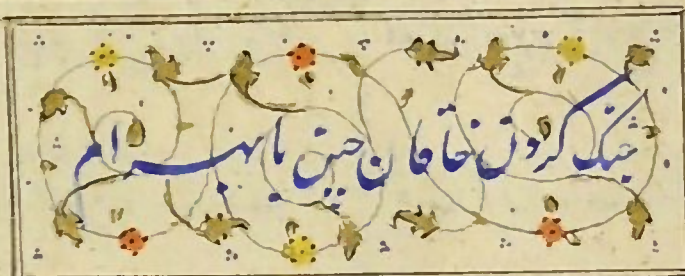 جنک کردن خاقان چین با بهرام